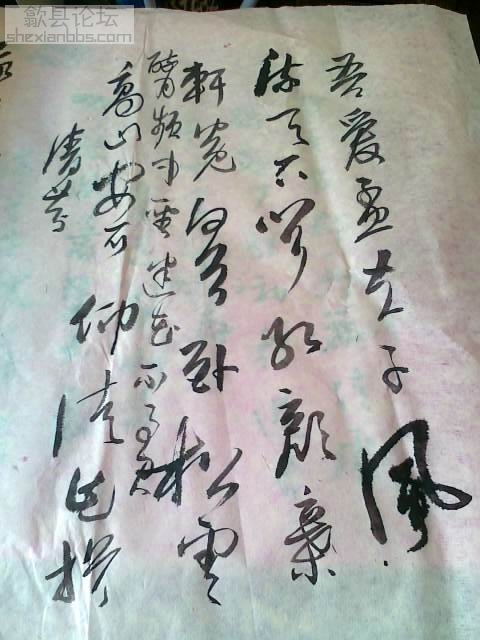 歙县论坛
shexianbbs.com
吾愛孟夫子風
流天下聞紅顏棄
軒冕白首卧松雲
醉月頻中聖迷花不事君
高山安可仰徒此揖
清芬